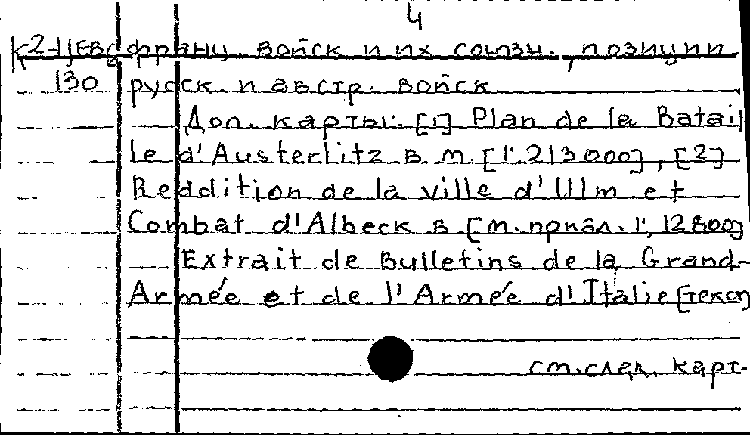 4
К 2-Цевс франц. войск и их союзн., позиции
130 русск. и австр. войск
Доп. карты: [1] Plan de la Batail
le d'Austerlitz в м. [1:213000], [2]
Reddition de la ville d'Ulm et
Combat d'Albeck в [м. прибл. 1:12800]
Extrait de Bulletins de la Grand-
Armée et de l'Armée d'Italie [текст]
см. след. карт.